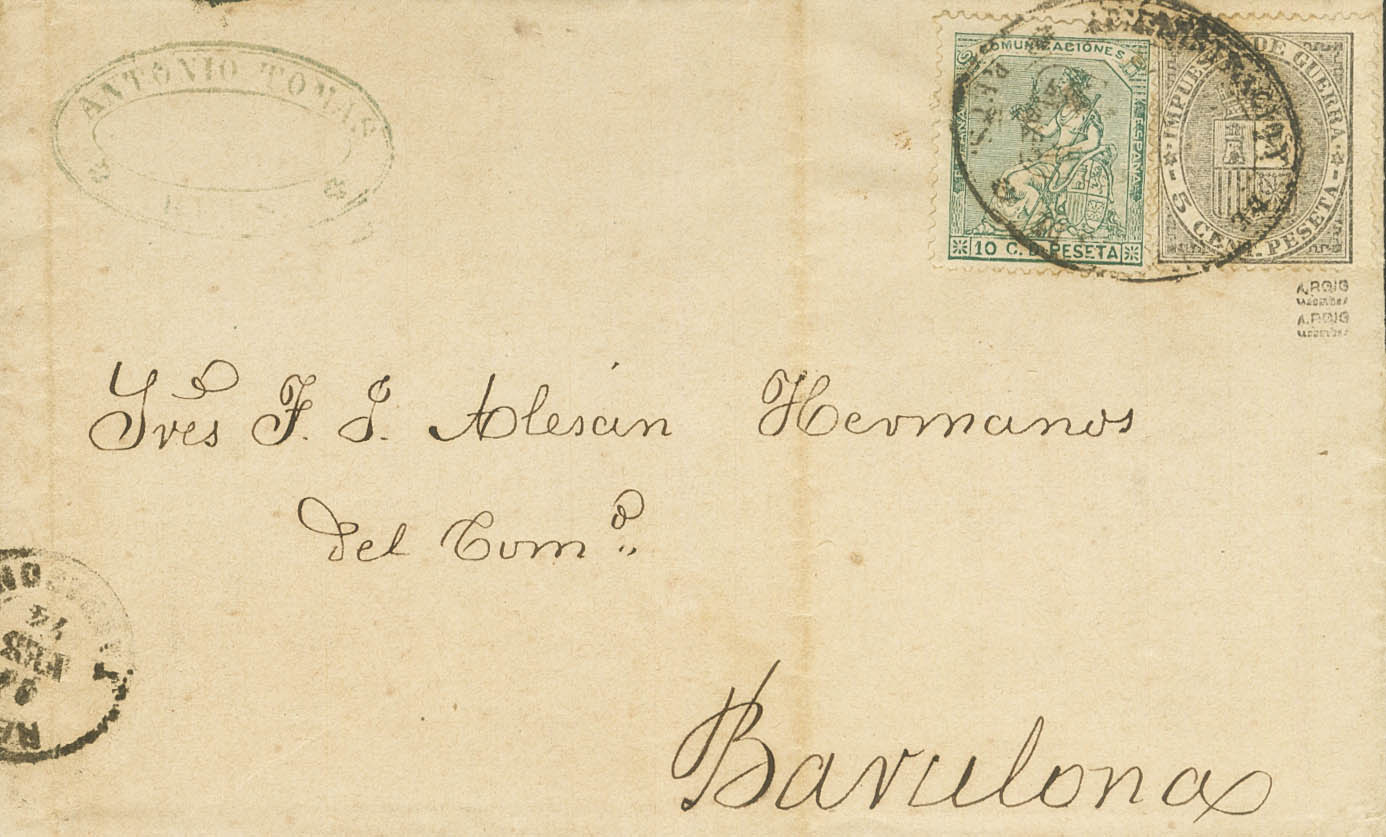 ANTONIO TOMAS
COMUNICACIONES
ESPAÑA
10 C. D PESETA
IMPUESTO DE GUERRA
5 CENT. PESETA
A.ROIG
A.ROIG
Sres F. J. Alesán Hermanos
del Comº
Barcelona
FEB
74